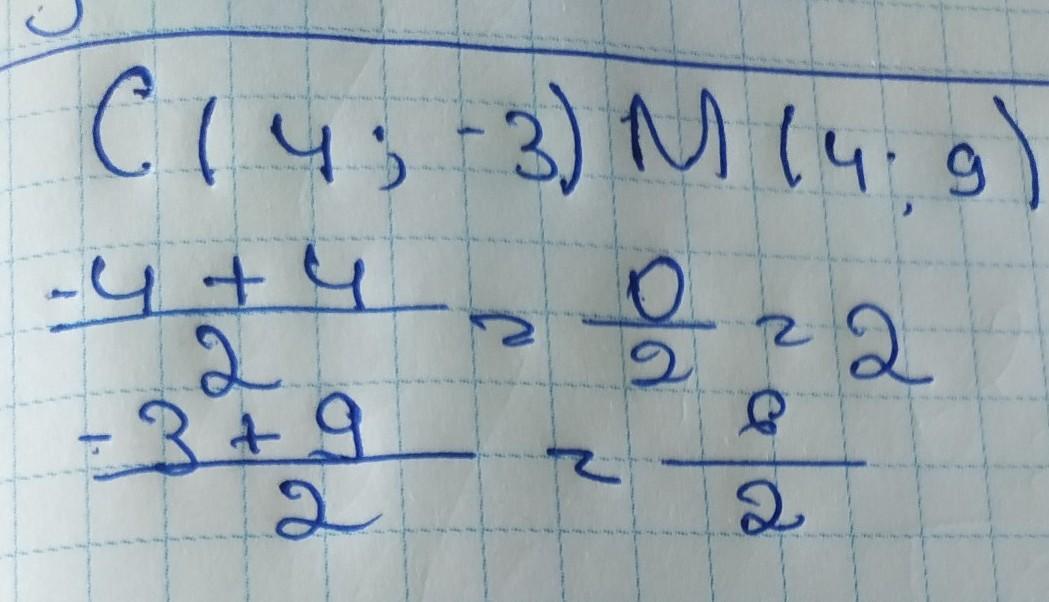 C(4; -3) M(4; 9)
-4 + 4 / 2 = 0 / 2 = 2
-3 + 9 / 2 = 8 / 2